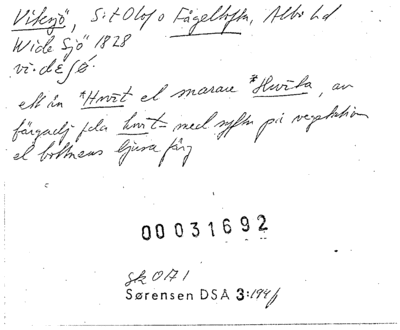 Viksjö, S:t Olof o Fågeltofta, Albo hd
Wide Sjö 1828
vi·desö.
ett ån *Hvit el snarare *Hvita, av
färgadj fda hvit- med syftn på vegetation
el bottnens ljusa färg
00031692
sk 0171
Sørensen DSA 3:194f